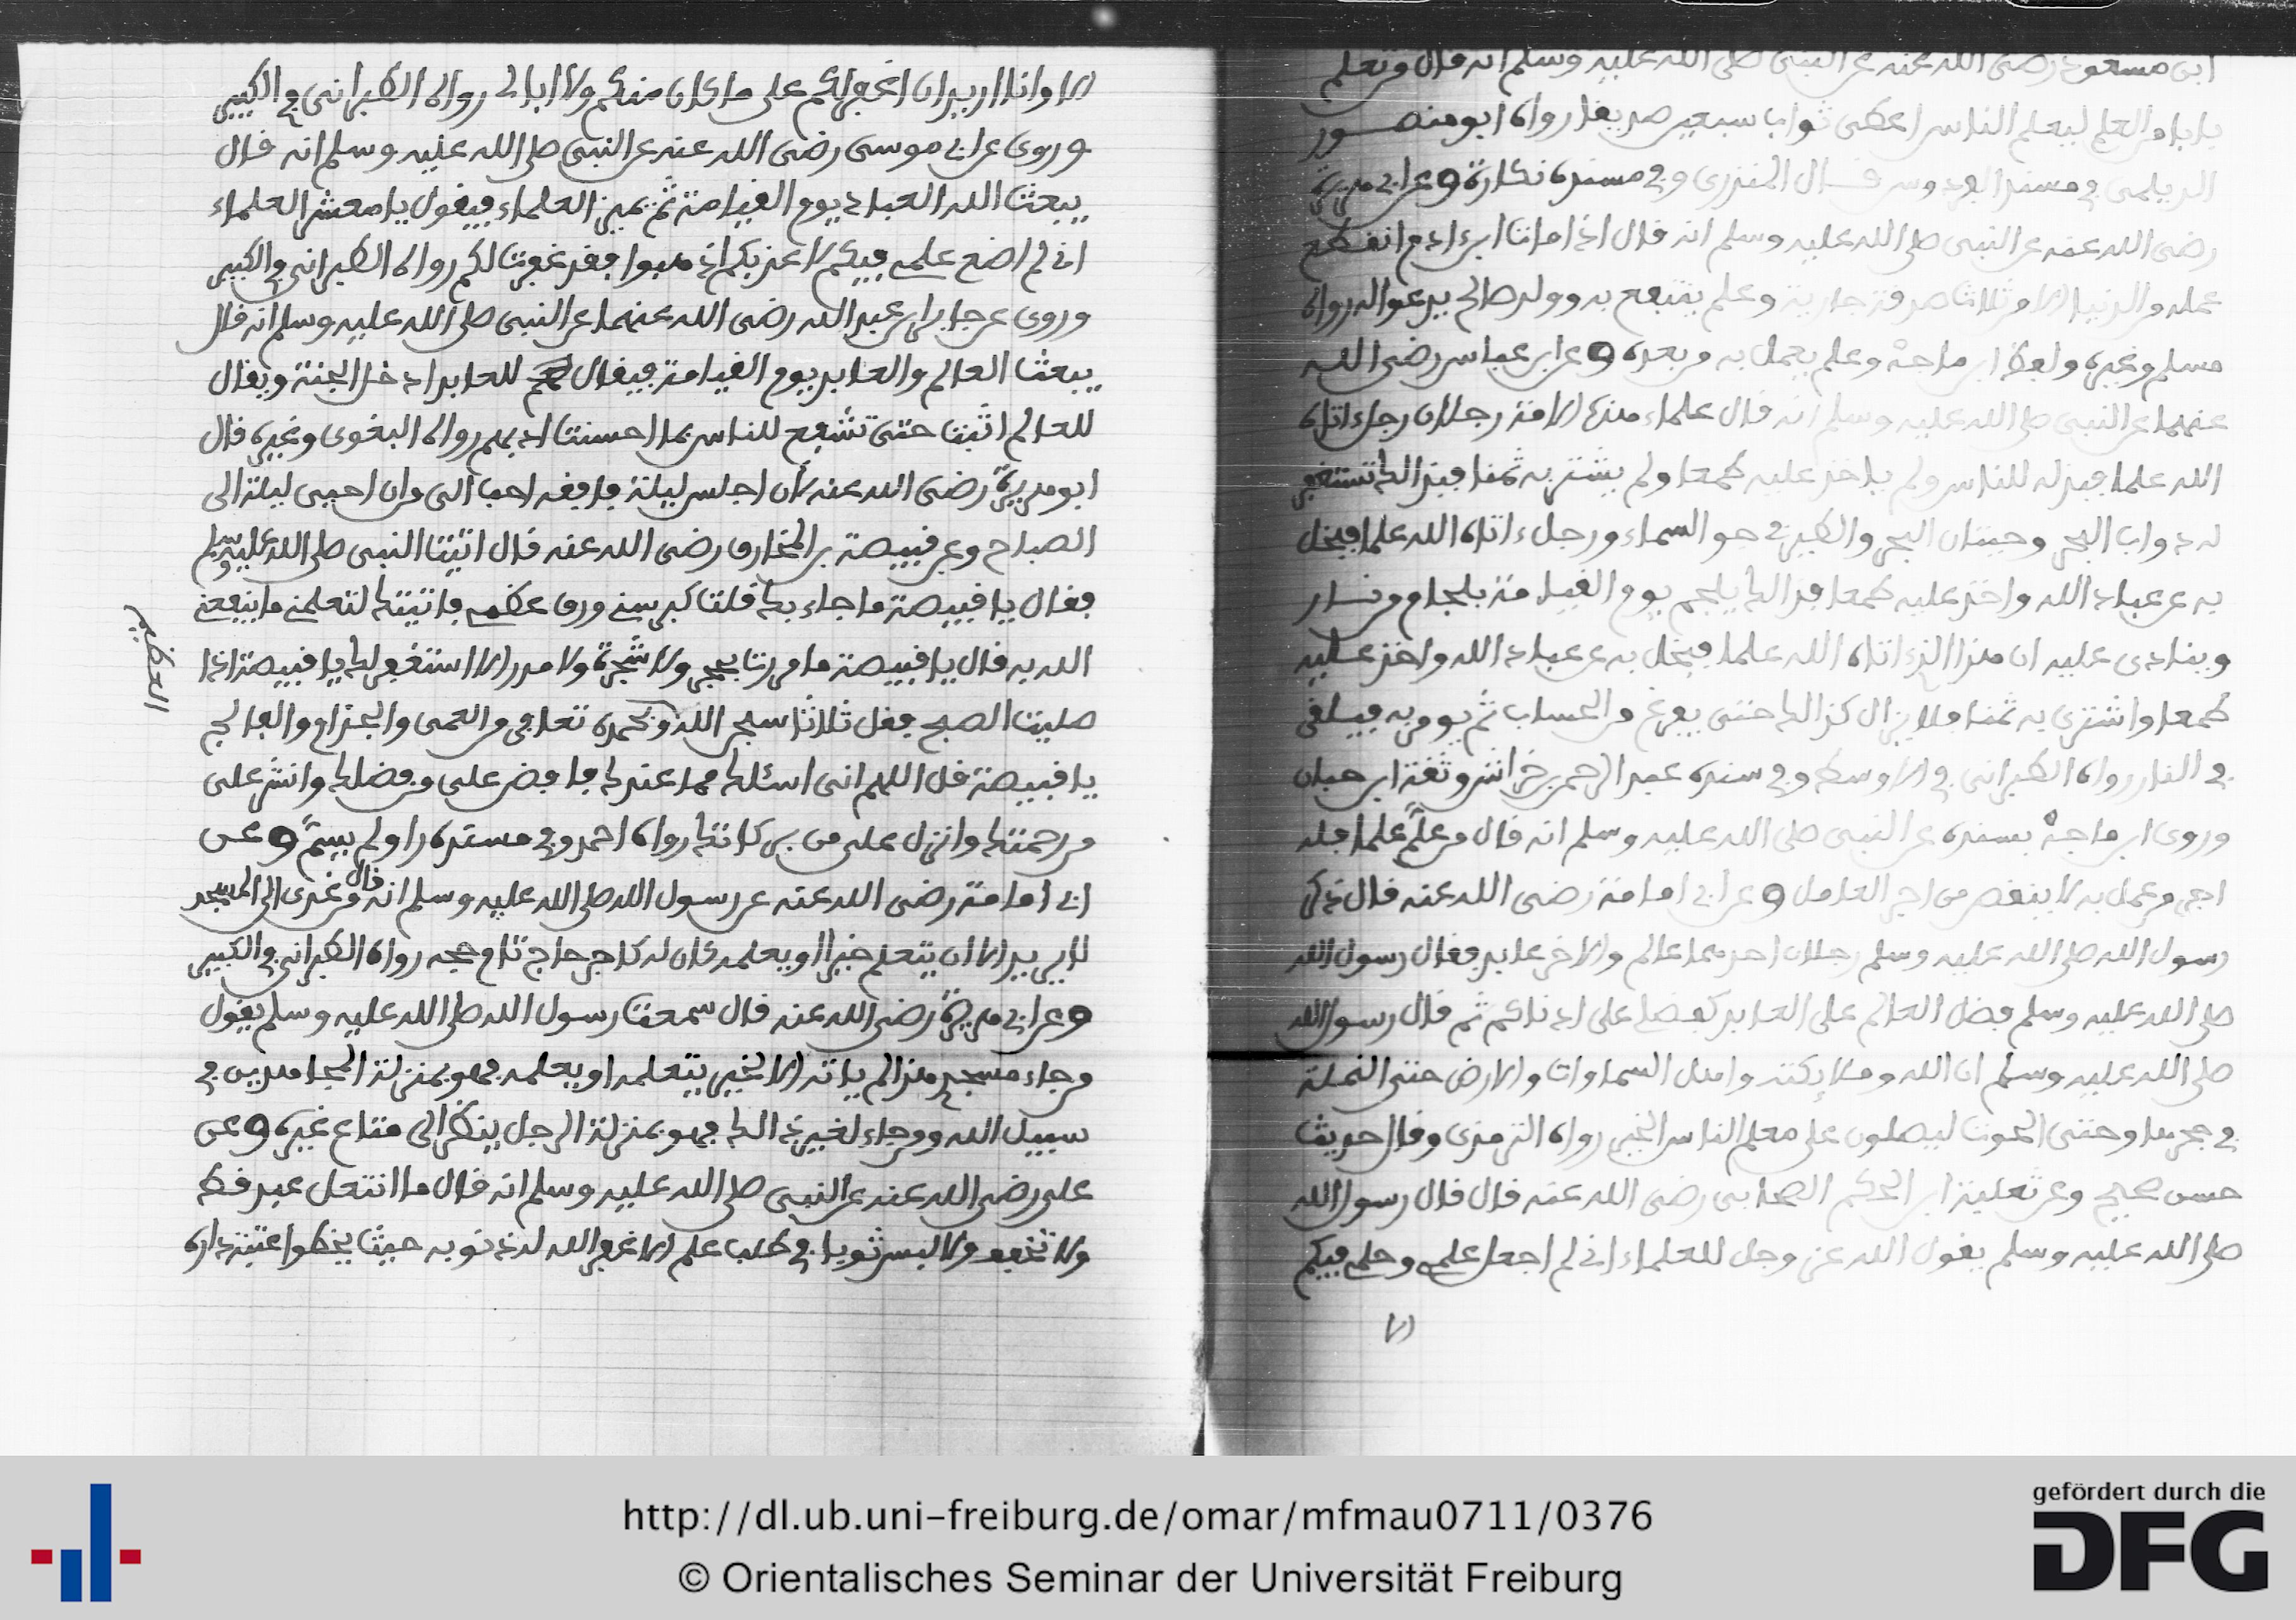 ابن مسعود رضي الله عنه عن النبي صلى الله عليه وسلم انه قال من تعلم
بابا من العلم ليعلم الناس اعطى ثواب سبعين صديقا رواه ابو منصور
الديلمي في مسند الفردوس قال المنذري وفي مسنده نكارة وعن ابي هريرة
رضي الله عنه عن النبي صلى الله عليه وسلم انه قال اذا مات ابن ءادم انقطع
عمله من الدنيا الا من ثلاث صدقة جارية وعلم ينتفع به وولد صالح يدعو له رواه
مسلم وغيره ولفظ ابن ماجة وعلم يعمل به من بعده وعن ابن عباس رضي الله
عنهما عن النبي صلى الله عليه وسلم انه قال علماء هذه الامة رجلان رجل ءاتاه
الله علما فبذله للناس ولم ياخذ عليه طمعا ولم يشتر به ثمنا فبذالك تستغفر
له دواب البحر وحيتان البحر والطير في جو السماء ورجل ءاتاه الله علما فبخل
به عن عباد الله واخذ عليه طمعا فذالك يلجم يوم القيامة بلجام من نار
وينادى عليه ان هذا الذي اتاه الله علما فبخل به عن عباد الله واخذ عليه
طمعا واشترى به ثمنا فلا يزال كذالك حتى يفرغ من الحساب ثم يومر به فيلقى
في النار رواه الطبراني في الاوسط وفي سنده عبد الرحمن بن خراش وثقه ابن حبان
وروى ابن ماجة بسنده عن النبي صلى الله عليه وسلم انه قال من علم علما فله
اجر من عمل به لا ينقص من اجر العامل وعن ابي امامة رضي الله عنه قال ذكر
رسول الله صلى الله عليه وسلم رجلان احدهما عالم والاخر عابد فقال رسول الله
صلى الله عليه وسلم فضل العالم على العابد كفضلي على ادناكم ثم قال رسول الله
صلى الله عليه وسلم ان الله وملايكته واهل السماوات والارض حتى النملة
في جحرها وحتى الحوت ليصلون على معلم الناس الخير رواه الترمذي وقال حديث
حسن صحيح وعن ثعلبة ابن الحكم الصحابي رضي الله عنه قال قال رسول الله
صلى الله عليه وسلم يقول الله عز وجل للعلماء اني لم اجعل علمي وحلمي فيكم
الا
الا وانا اريد ان اغفر لكم على ما كان منكم ولا ابالي رواه الطبراني في الكبير
وروي عن ابي موسى رضي الله عنه عن النبي صلى الله عليه وسلم انه قال
يبعث الله العباد يوم القيامة ثم يميز العلماء فيقول يا معشر العلماء
اني لم اضع علمي فيكم لاعذبكم اذهبوا فقد غفرت لكم رواه الطبراني في الكبير
وروي عن جابر ابن عبد الله رضي الله عنهما عن النبي صلى الله عليه وسلم انه قال
يبعث العالم والعابد يوم القيامة فيقال للعابد ادخل الجنة ويقال
للعالم اثبت حتى تشفع للناس بما احسنت ادبهم رواه البغوي وغيره قال
ابو هريرة رضي الله عنه لأن اجلس ليلة فافقه احب الى من ان احيي ليلة الى
الصباح وعن قبيصة بن المخارق رضي الله عنه قال اتيت النبي صلى الله عليه وسلم
فقال يا قبيصة ما جاء بك قلت كبر سني ورق عظمي فاتيتك لتعلمني ما ينفعني
العظيم
الله به قال يا قبيصة ما مررت بحجر ولا شجرة ولا مدر الا استغفر لك يا قبيصة اذا
صليت الصبح فقل ثلاثا سبحن الله وبحمده تعافى من العمى والجذام والفالج
يا قبيصة قل اللهم اني اسئلك مما عندك فافض علي من فضلك وانشر علي
من رحمتك وانزل علي من بركاتك رواه احمد وفي مسنده راو لم يسم وعن
ابي امامة رضي الله عنه عن رسول الله صلى الله عليه وسلم انه قال من غدى الى المسجد
لا يريد الا ان يتعلم خيرا او يعلمه كان له كاجر حاج تام حجه رواه الطبراني في الكبير
وعن ابي هريرة رضي الله عنه قال سمعت رسول الله صلى الله عليه وسلم يقول
من جاء مسجدي هذا لم ياته الا لخير يتعلمه او يعلمه فهو بمنزلة المجاهدين في
سبيل الله ومن جاء لغير ذالك فهو بمنزلة الرجل ينظر الى متاع غيره وعن
علي رضي الله عنه عن النبي صلى الله عليه وسلم انه قال ما انتعل عبد قط
ولا تخفف ولا لبس ثوبا في طلب علم الا غفر الله له ذنوبه حيث يخطوا عتبة داره
http://dl.ub.uni-freiburg.de/omar/mfmau0711/0376
© Orientalisches Seminar der Universität Freiburg
gefördert durch die
DFG